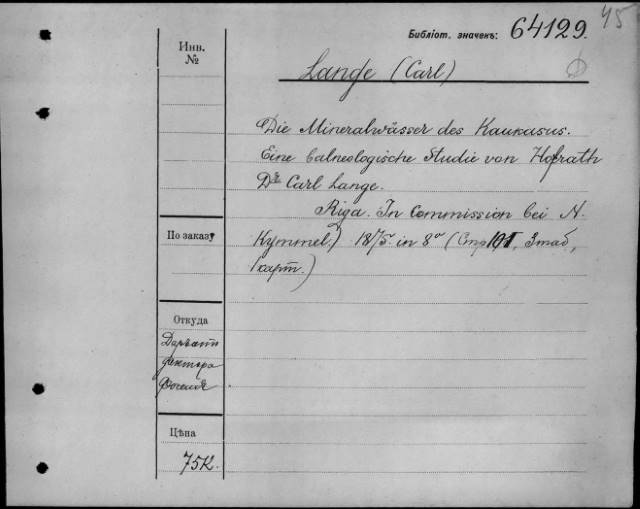 45
Библіот. значекъ: 64129.
Инв.
№
Lange (Carl)
Die Mineralwässer des Kaukasus.
Eine balneologische Studie von Hofrath
Dr Carl Lange.
Riga. In Commission bei N.
По заказу
Kymmel.) 1875. in 8° (Стр 101, 3 таб,
1 карт.)
Откуда
доктора
Цѣна
75к.